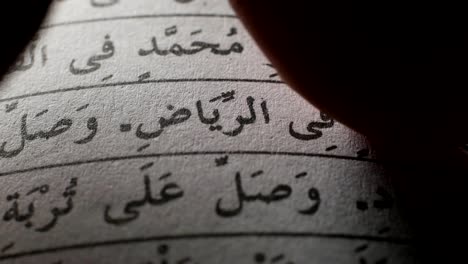 مُحَمَّدٍ فِي
فِي الرِّيَاضِ. وَصَلِّ
وَصَلِّ عَلَى تُرْبَةِ